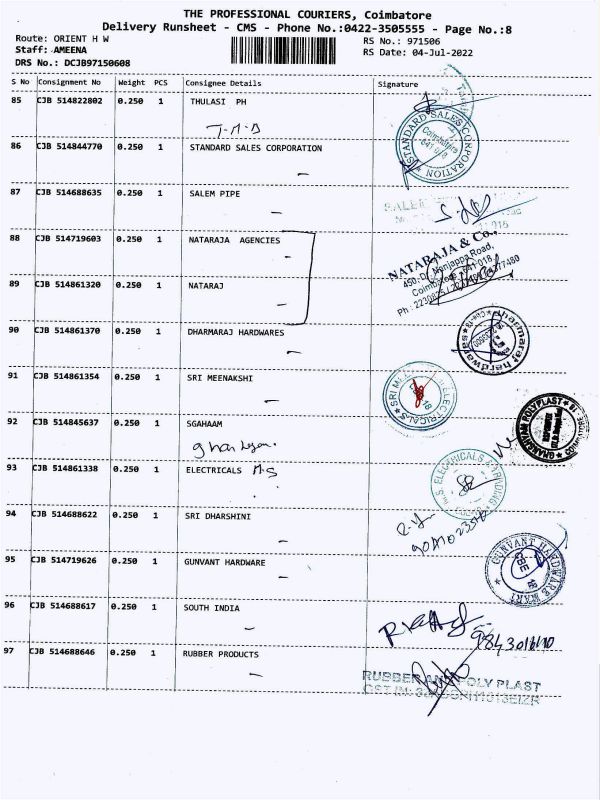 THE PROFESSIONAL COURIERS, Coimbatore
Delivery Runsheet - CMS - Phone No.:0422-3505555 - Page No.:8
Route: ORIENT H W
RS No.: 971506
Staff: AMEENA
RS Date: 04-Jul-2022
DRS No.: DCJB97150608
S No Consignment No Weight PCS Consignee Details Signature
85 CJB 514822802 0.250 1 THULASI PH
T-M-B
86 CJB 514844770 0.250 1 STANDARD SALES CORPORATION
STANDARD SALES CORPORATION
Coimbatore
87 CJB 514688635 0.250 1 SALEM PIPE
SALEM
88 CJB 514719603 0.250 1 NATARAJA AGENCIES
NATARAJA & Co.
450, D, Nanjappa Road,
Coimbatore - 641 018
89 CJB 514861320 0.250 1 NATARAJ
90 CJB 514861370 0.250 1 DHARMARAJ HARDWARES
Dharmaraj hardwares
91 CJB 514861354 0.250 1 SRI MEENAKSHI
ELECTRICALS
92 CJB 514845637 0.250 1 SGAHAAM
GHARDHYAN POLYPLAST
93 CJB 514861338 0.250 1 ELECTRICALS M-S
ELECTRICALS
94 CJB 514688622 0.250 1 SRI DHARSHINI
95 CJB 514719626 0.250 1 GUNVANT HARDWARE
GUNVANT HARDWARE MART
CBE
96 CJB 514688617 0.250 1 SOUTH INDIA
97 CJB 514688646 0.250 1 RUBBER PRODUCTS
RUBBER AND POLY PLAST